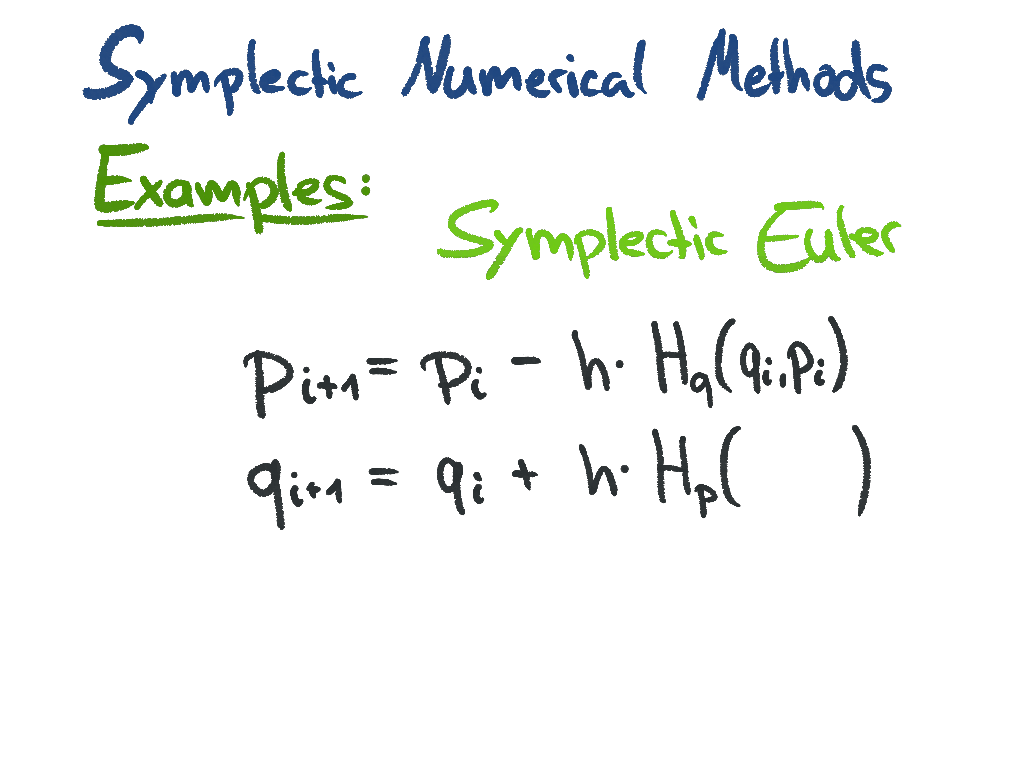 Symplectic Numerical Methods
Examples:
Symplectic Euler
p_{i+1} = p_i - h · H_q(q_i, p_i)
q_{i+1} = q_i + h · H_p(    )